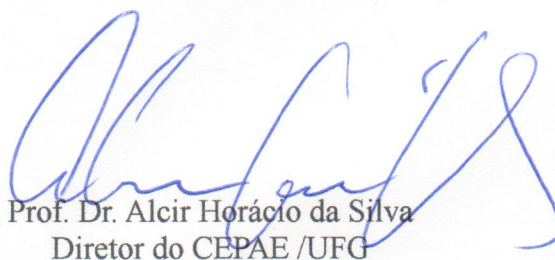 Prof. Dr. Alcir Horácio da Silva
Diretor do CEPAE /UFG